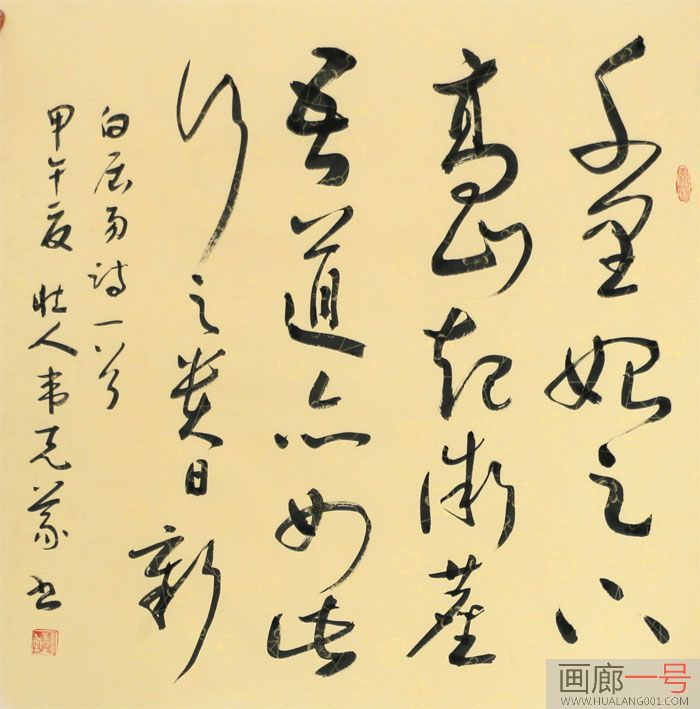 千里始足下
高山起微塵
吾道亦如此
行之貴日新
白居易詩一首
甲午夏 壯人韋克義書
画廊一号
WWW.HUALANG001.COM